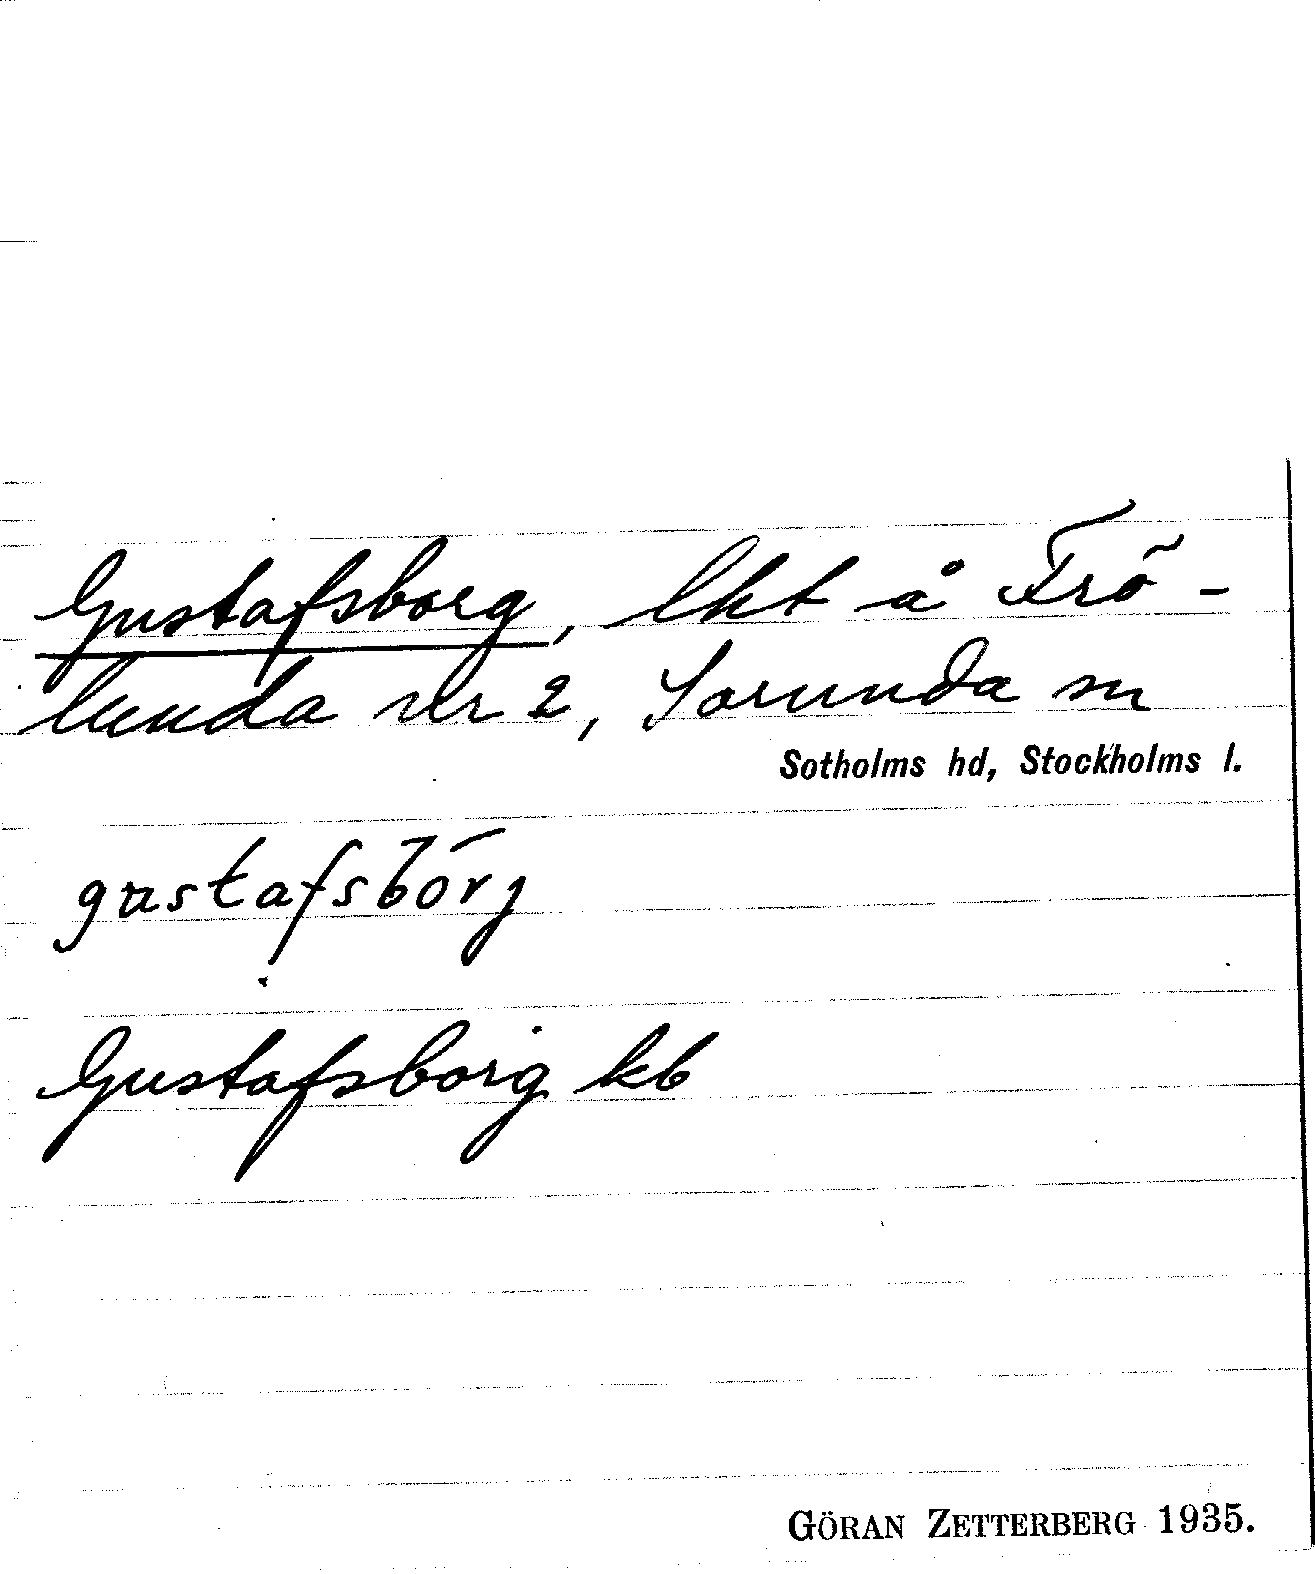 Gustafsborg, lht å Frö-
lunda nr 2, Sorunda sn
Sotholms hd, Stockholms l.
gustafsbórj
Gustafsborg kb
GÖRAN ZETTERBERG 1935.